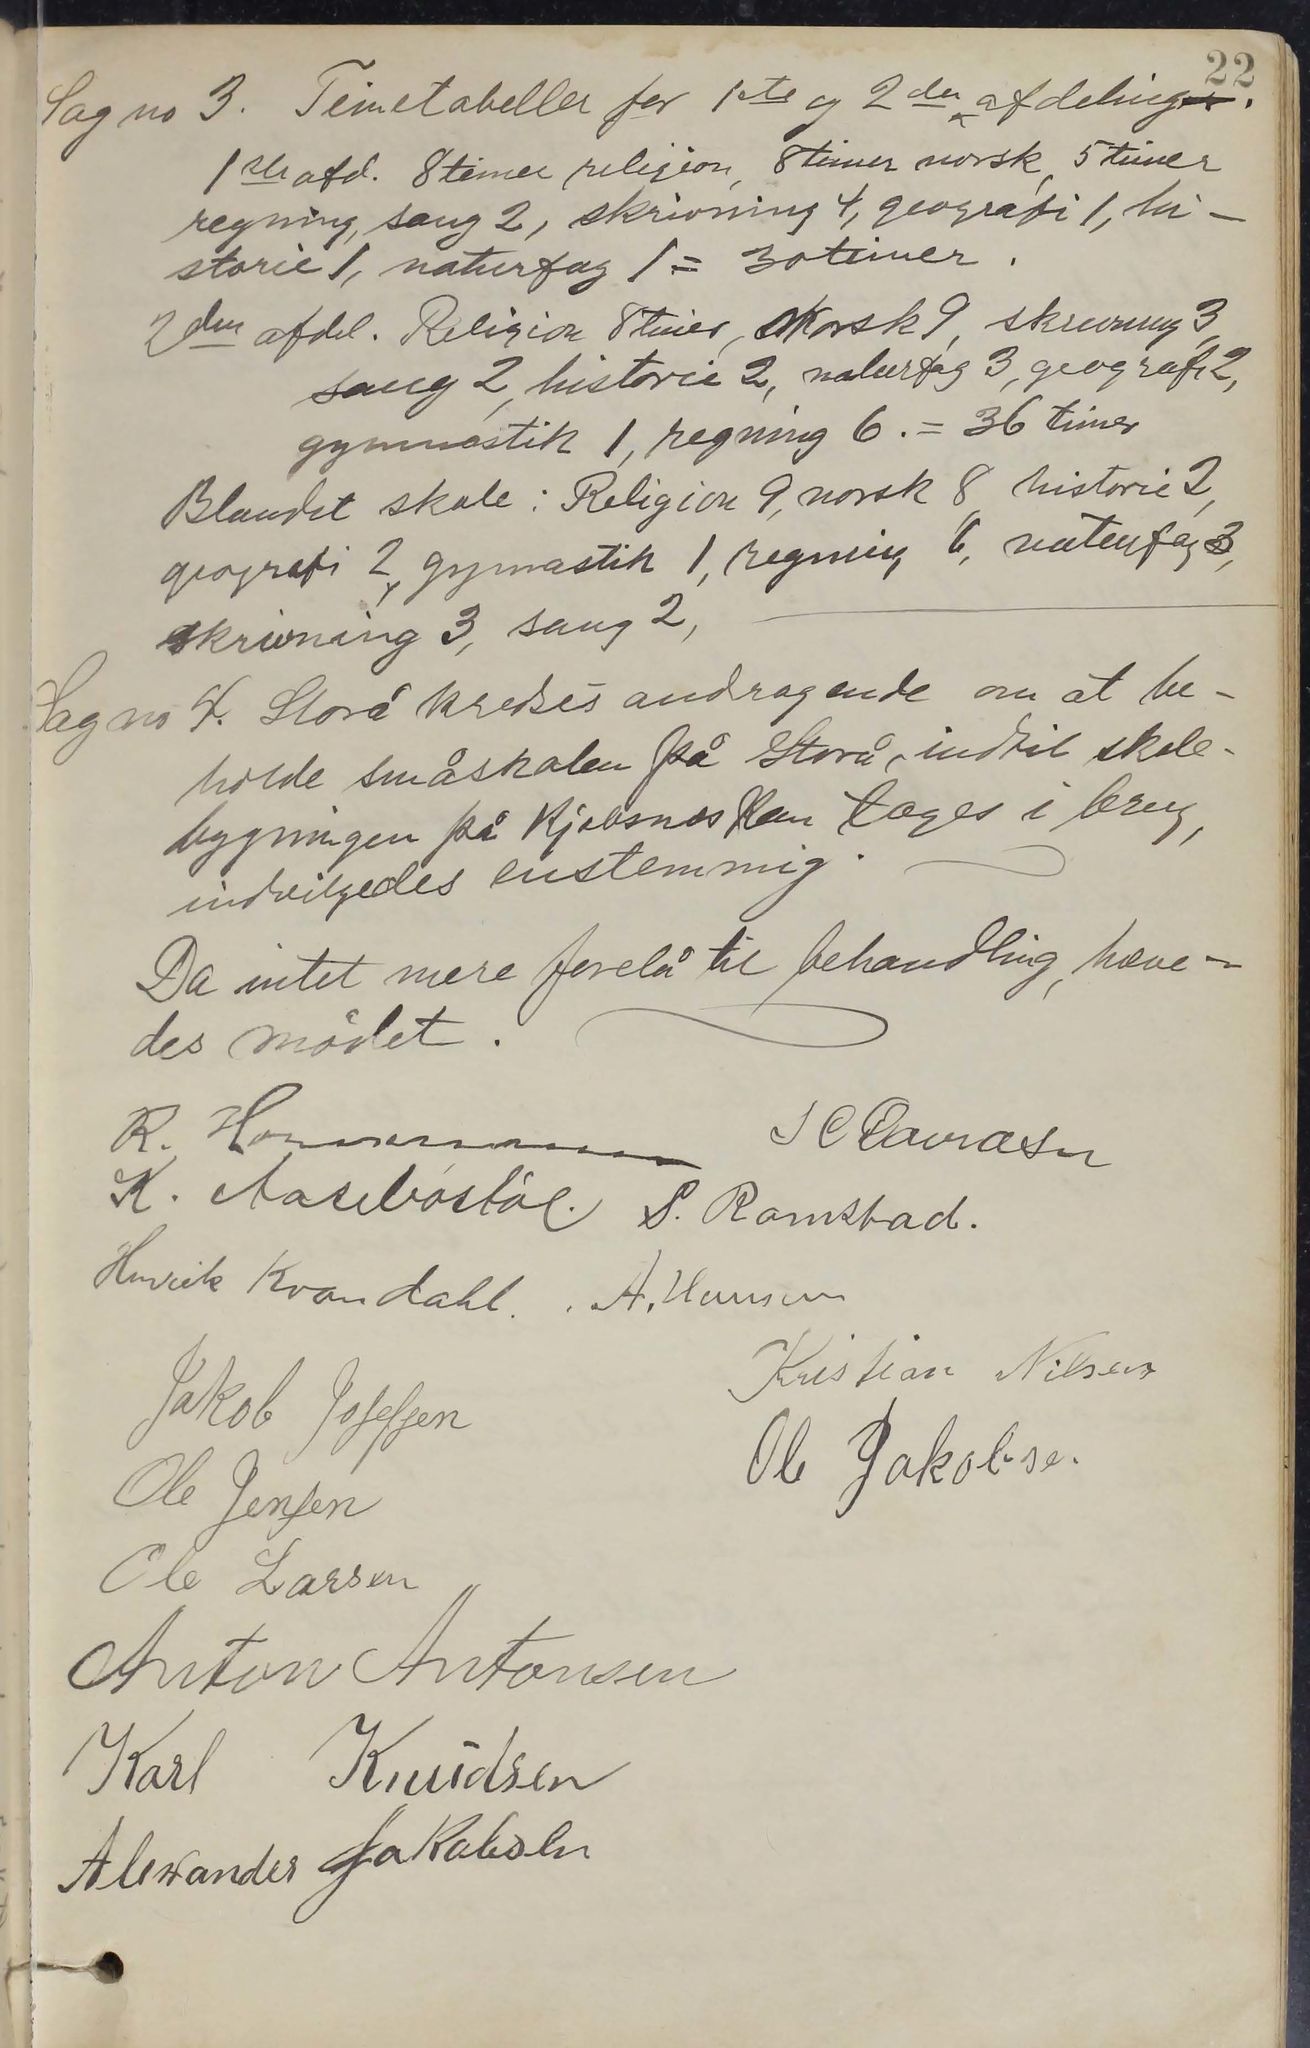 22
Sag no 3. Timetabeller for 1ste og 2den afdeling.
1ste afd. 8 timer religion, 8 timer norsk, 5 timer
regning, sang 2, skrivning 4, geografi 1, hi-
storie 1, naturfag 1 = 30 timer.
2den afdel. Religion 8 timer, Norsk 9, skrivning 3,
sang 2, historie 2, naturfag 3, geografi 2,
gymnastik 1, regning 6. = 36 timer
Blandet skole: Religion 9, norsk 8, historie 2,
geografi 2, gymastik 1, regning 6, naturfag 3,
skrivning 3, sang 2,
Sag no 4. Storå kredses andragende om at be-
holde småskolen på Storå, indtil skole-
bygningen på Kjøbsnes kan tages i brug,
indvilgedes enstemmig.
Da intet mere forelå til behandling, hæve-
des mødet.
R.
K. Aasebøstøl. S. Ramstad.
Henrik Kvandahl. A. Hansen
Kristian Nilsen
Jakob Josefsen
Ole Jakobse.
Ole Jensen
Ole Larsen
Anton Antonsen
Karl Knudsen
Alexander Jakobsen